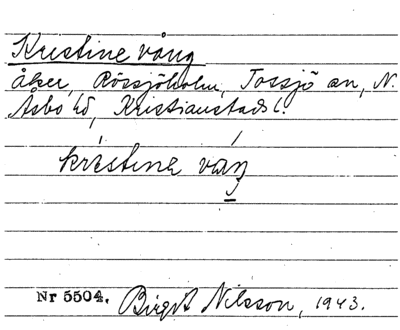 Kristine vång
Åker, Rössjöholm, Tossjö sn, N.
Åsbo hd, Kristianstads l.
kristine váŋ
Nr 5504. Birgit Nilsson, 1943.